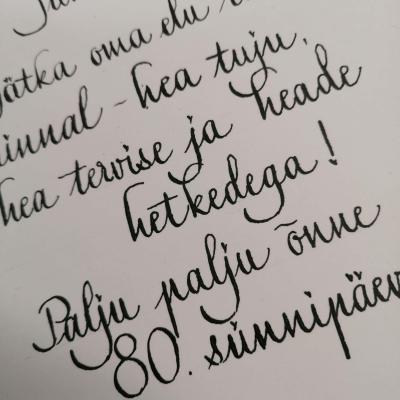 jätka oma elu
hea tuju,
hea tervise ja heade
hetkedega!
Palju palju õnne
80. sünnipäev